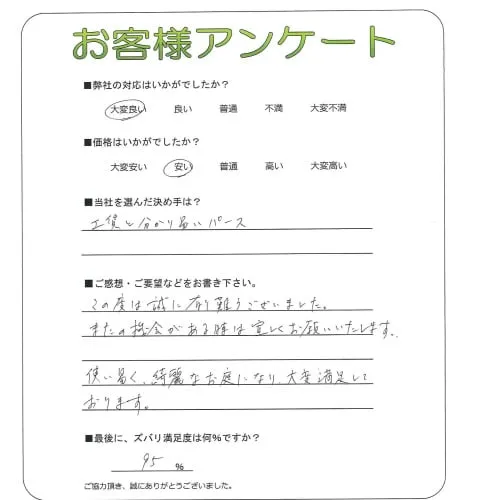 お客様アンケート
■弊社の対応はいかがでしたか？
大変良い 良い 普通 不満 大変不満
■価格はいかがでしたか？
大変安い 安い 普通 高い 大変高い
■当社を選んだ決め手は？
工賃と分かり易いパース
■ご感想・ご要望などをお書き下さい。
この度は誠に有り難うございました。
またの機会がある時は宜しくお願いいたします。
使い易く、綺麗なお庭になり、大変満足して
おります。
■最後に、ズバリ満足度は何%ですか？
95 %
ご協力頂き、誠にありがとうございました。